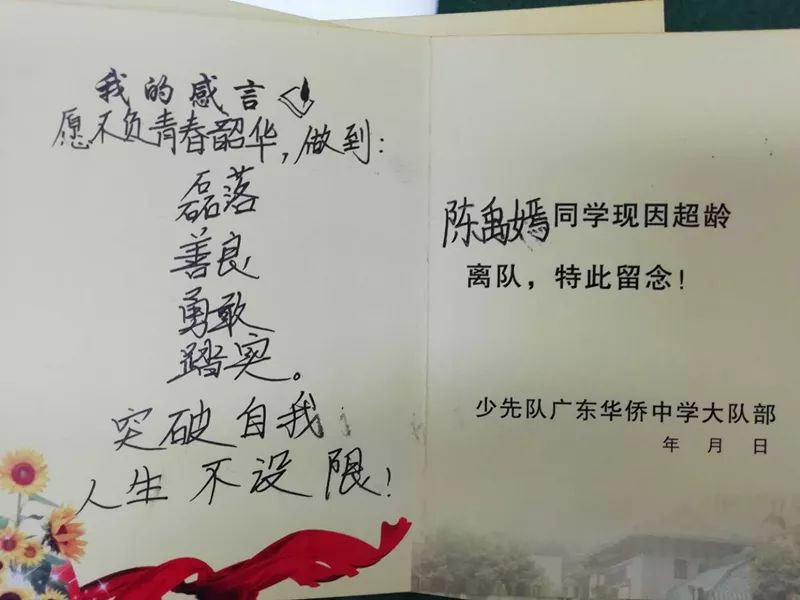 我的感言
愿不负青春韶华,做到:
磊落
善良
勇敢
踏实。
突破自我
人生不设限!
陈禹嫣同学现因超龄
离队，特此留念!
少先队广东华侨中学大队部
年 月 日